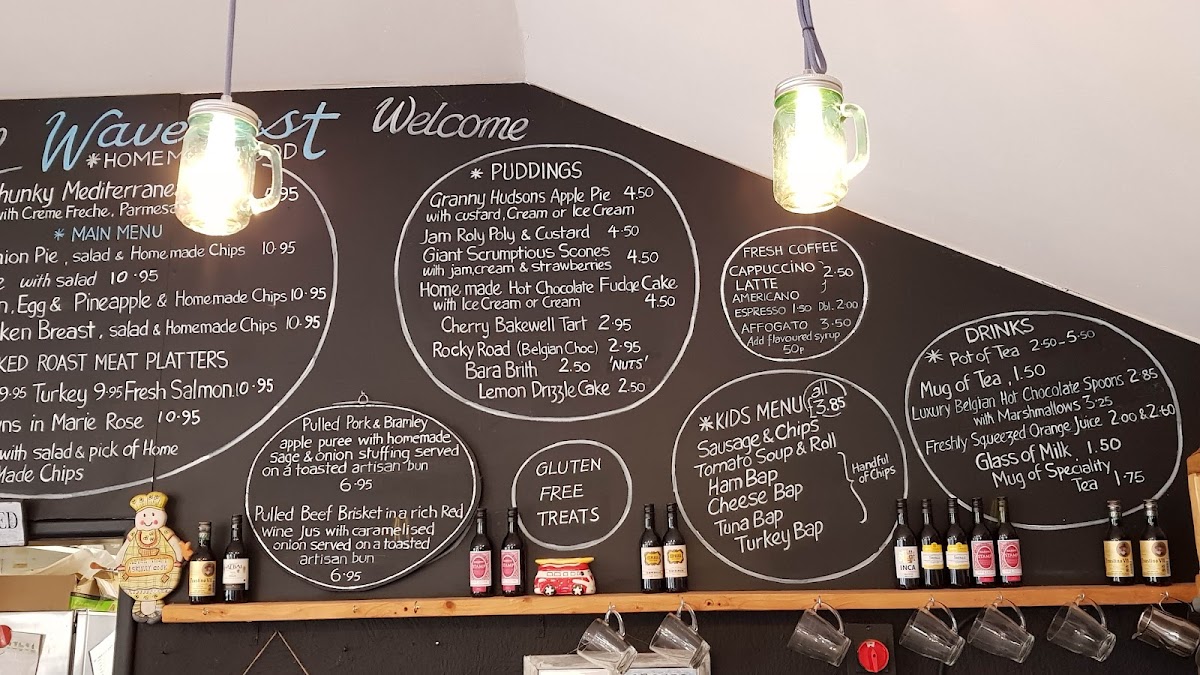 Welcome
* HOMEM
hunky Mediterrane
with Creme Freche, Parmesa
* MAIN MENU
nion Pie, salad & Homemade Chips 10.95
with salad 10.95
n, Egg & Pineapple & Homemade Chips 10.95
ken Breast, salad & Homemade Chips 10.95
KED ROAST MEAT PLATTERS
9.95 Turkey 9.95 Fresh Salmon 10.95
wns in Marie Rose 10.95
with salad & pick of Home
Made Chips
Pulled Pork & Bramley
apple puree with homemade
sage & onion stuffing served
on a toasted artisan bun
6.95
Pulled Beef Brisket in a rich Red
Wine Jus with caramelised
onion served on a toasted
artisan bun
6.95
* PUDDINGS
Granny Hudsons Apple Pie 4.50
with custard, Cream or Ice Cream
Jam Roly Poly & Custard 4.50
Giant Scrumptious Scones
with jam, cream & strawberries 4.50
Home made Hot Chocolate Fudge Cake
with Ice Cream or Cream 4.50
Cherry Bakewell Tart 2.95
Rocky Road (Belgian Choc) 2.95
Bara Brith 2.50 'NUTS'
Lemon Drizzle Cake 2.50
GLUTEN
FREE
TREATS
FRESH COFFEE
CAPPUCCINO 2.50
LATTE
AMERICANO
ESPRESSO 1.50 Dbl. 2.00
AFFOGATO 3.50
Add flavoured syrup
50p
* KIDS MENU all £3.85
Sausage & Chips
Tomato Soup & Roll
Ham Bap
Cheese Bap
Tuna Bap
Turkey Bap
Handful
of Chips
DRINKS
* Pot of Tea 2.50-5.50
Mug of Tea, 1.50
Luxury Belgian Hot Chocolate Spoons 2.85
with Marshmallows 3.25
Freshly Squeezed Orange Juice 2.00 & 2.60
Glass of Milk. 1.50
Mug of Speciality
Tea 1.75
INCA